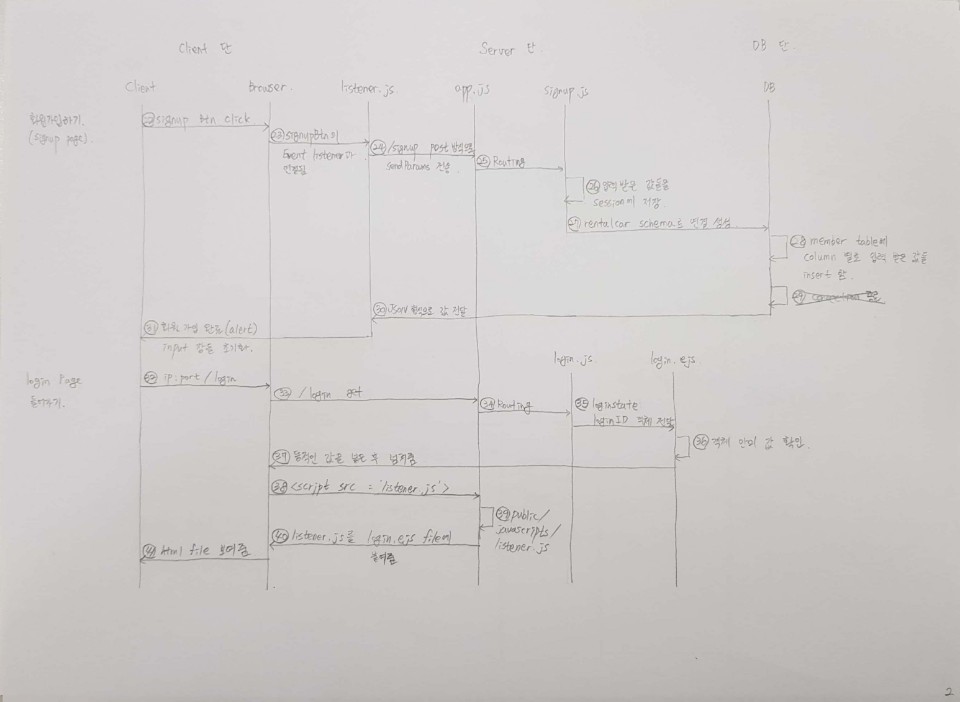 Client 단 Server 단 DB 단
Client Browser. listener.js app.js signup.js DB
회원가입하기.
(signup page).
㉒ signup btn click
㉓ signupBtn이
Event listener과
연결됨
㉔ /signup post 방식으로
send Params 전달
㉕ Routing
㉖ 입력 받은 값들을
session에 저장.
㉗ rentalcar schema로 연결 생성.
㉘ member table에
column 별로 입력 받은 값들
insert 함.
㉙
㉚ JSON 형식으로 값 전달
㉛ 회원 가입 완료 (alert)
input 값을 초기화.
login.js login.ejs
login Page
들어가기.
㉜ ip:port/login
㉝ /login get
㉞ Routing
㉟ loginstate
loginID 객체 전달
㊱ 객체 안의 값 확인.
㊲ 동적인 값을 넣은 후 넘겨줌
㊳ <script src = 'listener.js'>
㊴ public/
javascripts/
listener.js
㊵ listener.js를 login.ejs file에
붙여줌
㊶ html file 보여줌
2